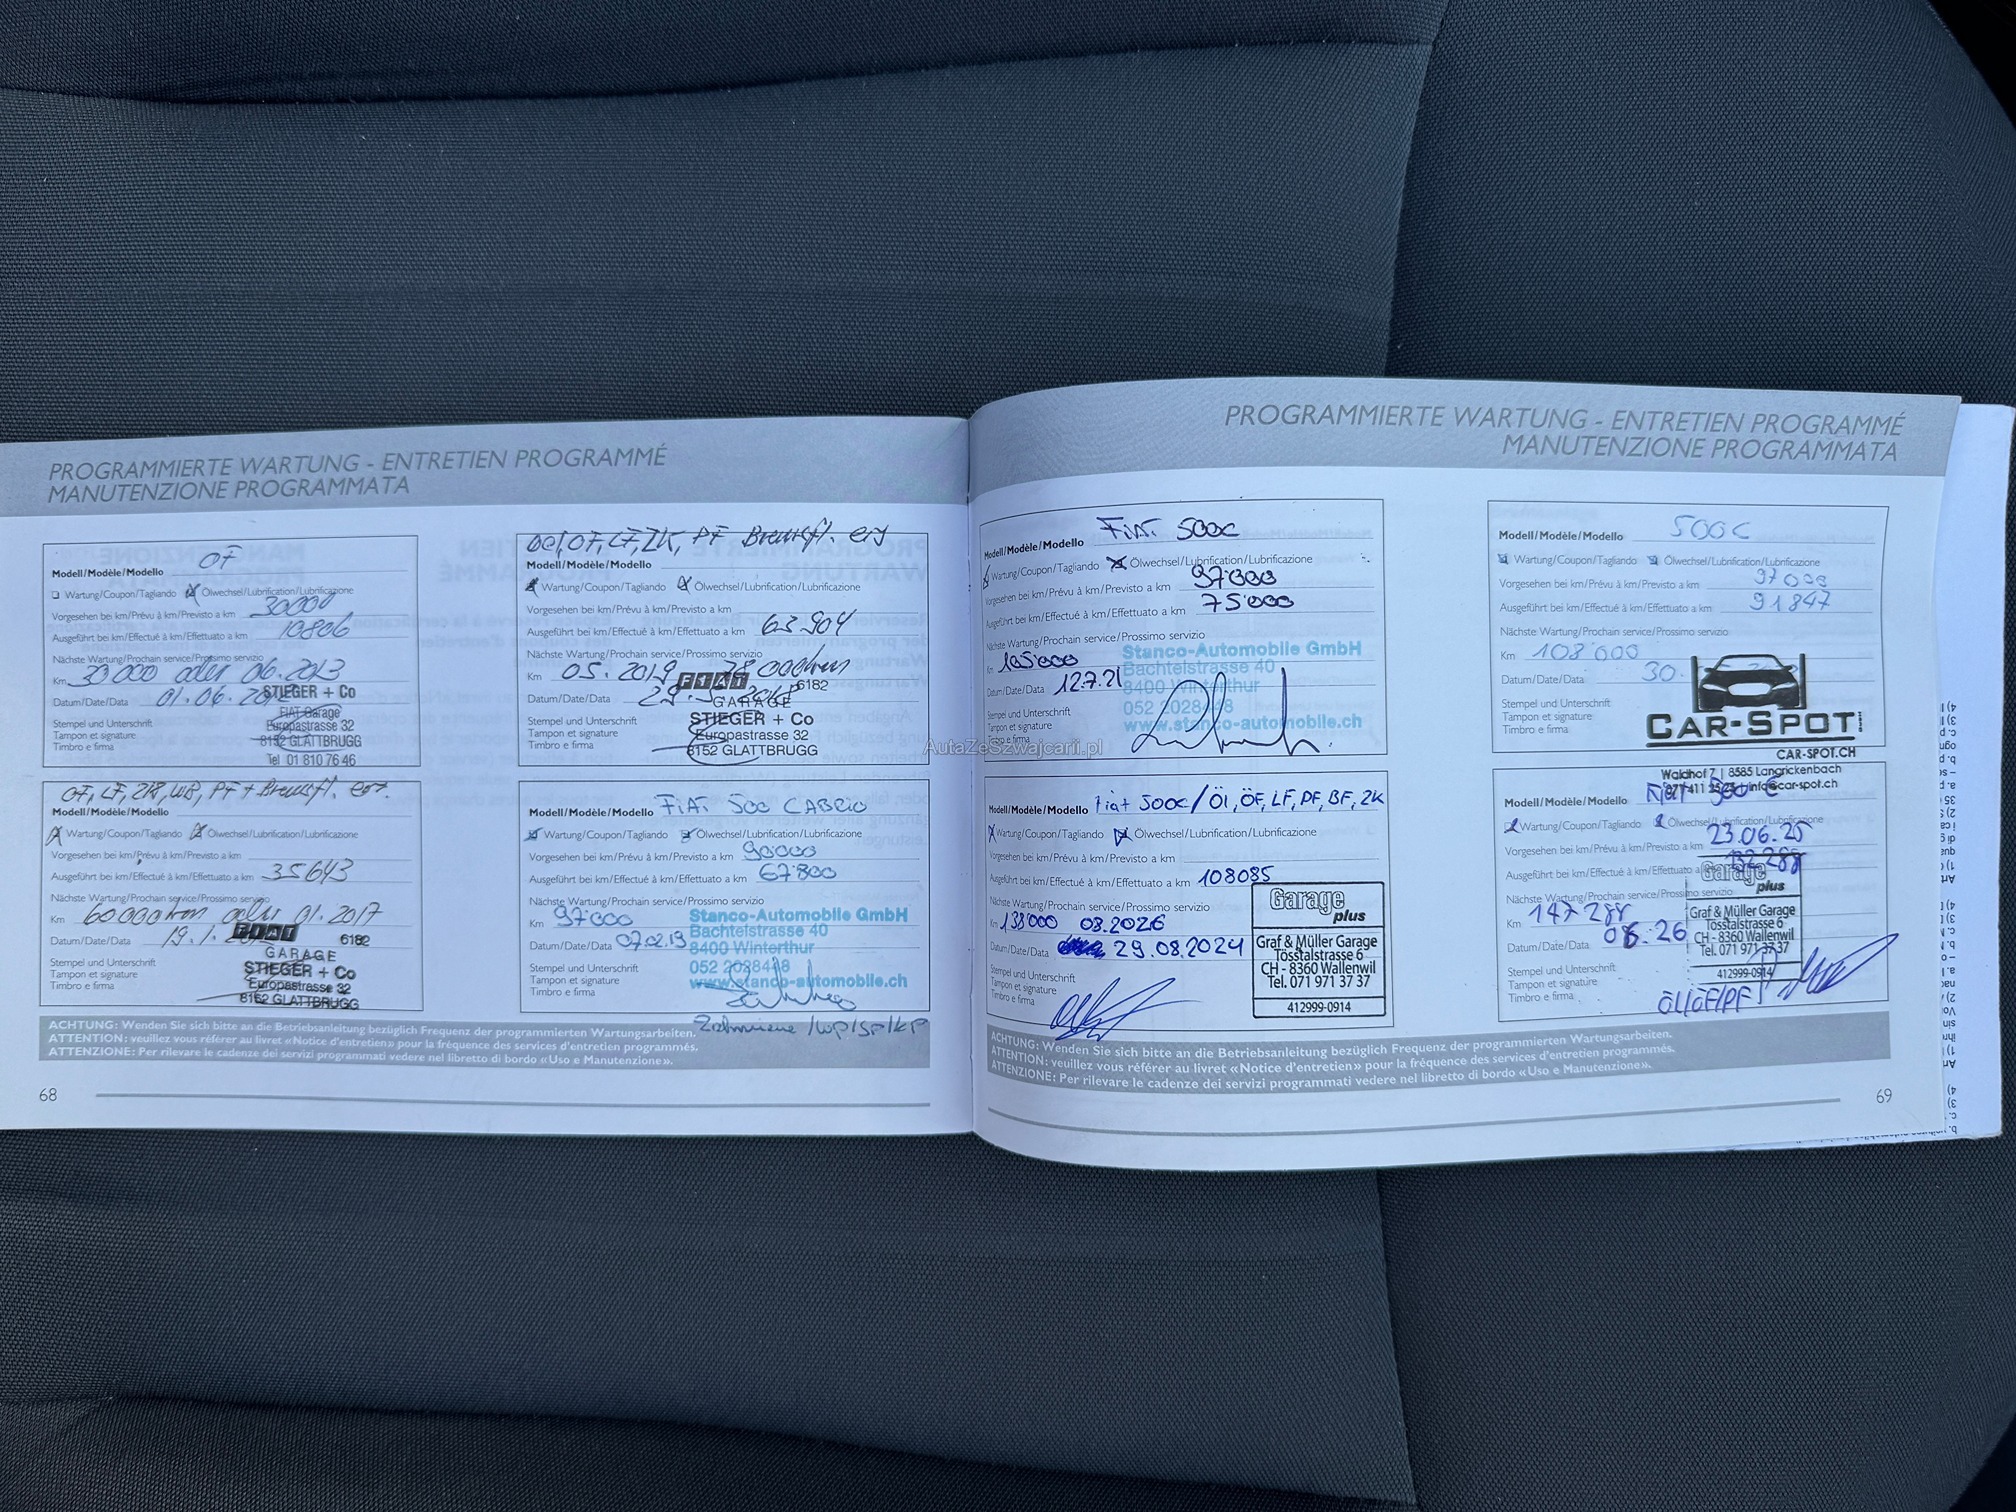 PROGRAMMIERTE WARTUNG - ENTRETIEN PROGRAMMÉ
MANUTENZIONE PROGRAMMATA
OF
Modell/Modèle/Modello
Wartung/Coupon/Tagliando Ölwechsel/Lubrification/Lubrificazione
Vorgesehen bei km/Prévu à km/Previsto a km 30000
Ausgeführt bei km/Effectué à km/Effettuato a km 10806
Nächste Wartung/Prochain service/Prossimo servizio
Km 30000 oder 06.2013
Datum/Date/Data 01.06.
Stempel und Unterschrift
Tampon et signature
Timbro e firma
STIEGER + Co
FIAT Garage
Europastrasse 32
8152 GLATTBRUGG
Tel 01 810 76 46
OF, LF, ZK, WB, PF + Bremsfl. ers.
Modell/Modèle/Modello
Wartung/Coupon/Tagliando Ölwechsel/Lubrification/Lubrificazione
Vorgesehen bei km/Prévu à km/Previsto a km
Ausgeführt bei km/Effectué à km/Effettuato a km 35643
Nächste Wartung/Prochain service/Prossimo servizio
Km 60000km oder 01.2017
Datum/Date/Data 19.1.
Stempel und Unterschrift
Tampon et signature
Timbro e firma
FIAT 6182
GARAGE
STIEGER + Co
Europastrasse 32
8152 GLATTBRUGG
OF, LF, ZK, PF Bremsfl. ers
Modell/Modèle/Modello
Wartung/Coupon/Tagliando Ölwechsel/Lubrification/Lubrificazione
Vorgesehen bei km/Prévu à km/Previsto a km
Ausgeführt bei km/Effectué à km/Effettuato a km 63.904
Nächste Wartung/Prochain service/Prossimo servizio
Km 05.2019 78000km
Datum/Date/Data
Stempel und Unterschrift
Tampon et signature
Timbro e firma
FIAT 6182
GARAGE
STIEGER + Co
Europastrasse 32
8152 GLATTBRUGG
Modell/Modèle/Modello FIAT 500 CABRIO
Wartung/Coupon/Tagliando Ölwechsel/Lubrification/Lubrificazione
Vorgesehen bei km/Prévu à km/Previsto a km 90000
Ausgeführt bei km/Effectué à km/Effettuato a km 67800
Nächste Wartung/Prochain service/Prossimo servizio
Km 97000
Datum/Date/Data 07.02.19
Stempel und Unterschrift
Tampon et signature
Timbro e firma
Stanco-Automobile GmbH
Bachtelstrasse 40
8400 Winterthur
052 2028448
www.stanco-automobile.ch
Zahnriemen /WP/SP/KP
ACHTUNG: Wenden Sie sich bitte an die Betriebsanleitung bezüglich Frequenz der programmierten Wartungsarbeiten.
ATTENTION: veuillez vous référer au livret «Notice d'entretien» pour la fréquence des services d'entretien programmés.
ATTENZIONE: Per rilevare le cadenze dei servizi programmati vedere nel libretto di bordo «Uso e Manutenzione».
68
PROGRAMMIERTE WARTUNG - ENTRETIEN PROGRAMMÉ
MANUTENZIONE PROGRAMMATA
Modell/Modèle/Modello FIAT 500C
Wartung/Coupon/Tagliando Ölwechsel/Lubrification/Lubrificazione
Vorgesehen bei km/Prévu à km/Previsto a km 97000
Ausgeführt bei km/Effectué à km/Effettuato a km 75000
Nächste Wartung/Prochain service/Prossimo servizio
Km 105000
Datum/Date/Data 12.7.21
Stempel und Unterschrift
Tampon et signature
Timbro e firma
Stanco-Automobile GmbH
Bachtelstrasse 40
8400 Winterthur
052 2028448
www.stanco-automobile.ch
Modell/Modèle/Modello Fiat 500c/Öl, ÖF, LF, PF, BF, ZK
Wartung/Coupon/Tagliando Ölwechsel/Lubrification/Lubrificazione
Vorgesehen bei km/Prévu à km/Previsto a km
Ausgeführt bei km/Effectué à km/Effettuato a km 108085
Nächste Wartung/Prochain service/Prossimo servizio
Km 138'000 08.2026
Datum/Date/Data 29.08.2024
Stempel und Unterschrift
Tampon et signature
Timbro e firma
Garage
plus
Graf & Müller Garage
Tösstalstrasse 6
CH - 8360 Wallenwil
Tel. 071 971 37 37
412999-0914
Modell/Modèle/Modello 500C
Wartung/Coupon/Tagliando Ölwechsel/Lubrification/Lubrificazione
Vorgesehen bei km/Prévu à km/Previsto a km
Ausgeführt bei km/Effectué à km/Effettuato a km 91847
Nächste Wartung/Prochain service/Prossimo servizio
Km 108000
Datum/Date/Data 30.
Stempel und Unterschrift
Tampon et signature
Timbro e firma
CAR-SPOT
CAR-SPOT.CH
Waldhof 7 | 8585 Langrickenbach
info@car-spot.ch
Modell/Modèle/Modello Fiat 500 C
Wartung/Coupon/Tagliando Ölwechsel/Lubrification/Lubrificazione
Vorgesehen bei km/Prévu à km/Previsto a km 23.06.25
Ausgeführt bei km/Effectué à km/Effettuato a 132288
Nächste Wartung/Prochain service/Prossimo servizio
Km 147288
Datum/Date/Data 06.26
Stempel und Unterschrift
Tampon et signature
Timbro e firma
Garage
plus
Graf & Müller Garage
Tösstalstrasse 6
CH - 8360 Wallenwil
Tel. 071 971 37 37
412999-0914
Öl/ÖF/PF
ACHTUNG: Wenden Sie sich bitte an die Betriebsanleitung bezüglich Frequenz der programmierten Wartungsarbeiten.
ATTENTION: veuillez vous référer au livret «Notice d'entretien» pour la fréquence des services d'entretien programmés.
ATTENZIONE: Per rilevare le cadenze dei servizi programmati vedere nel libretto di bordo «Uso e Manutenzione».
69
AutaZeSzwajcarii.pl